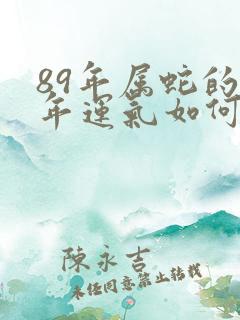 89年属蛇的
年運氣如何
陳永吉
未經同意禁止轉載